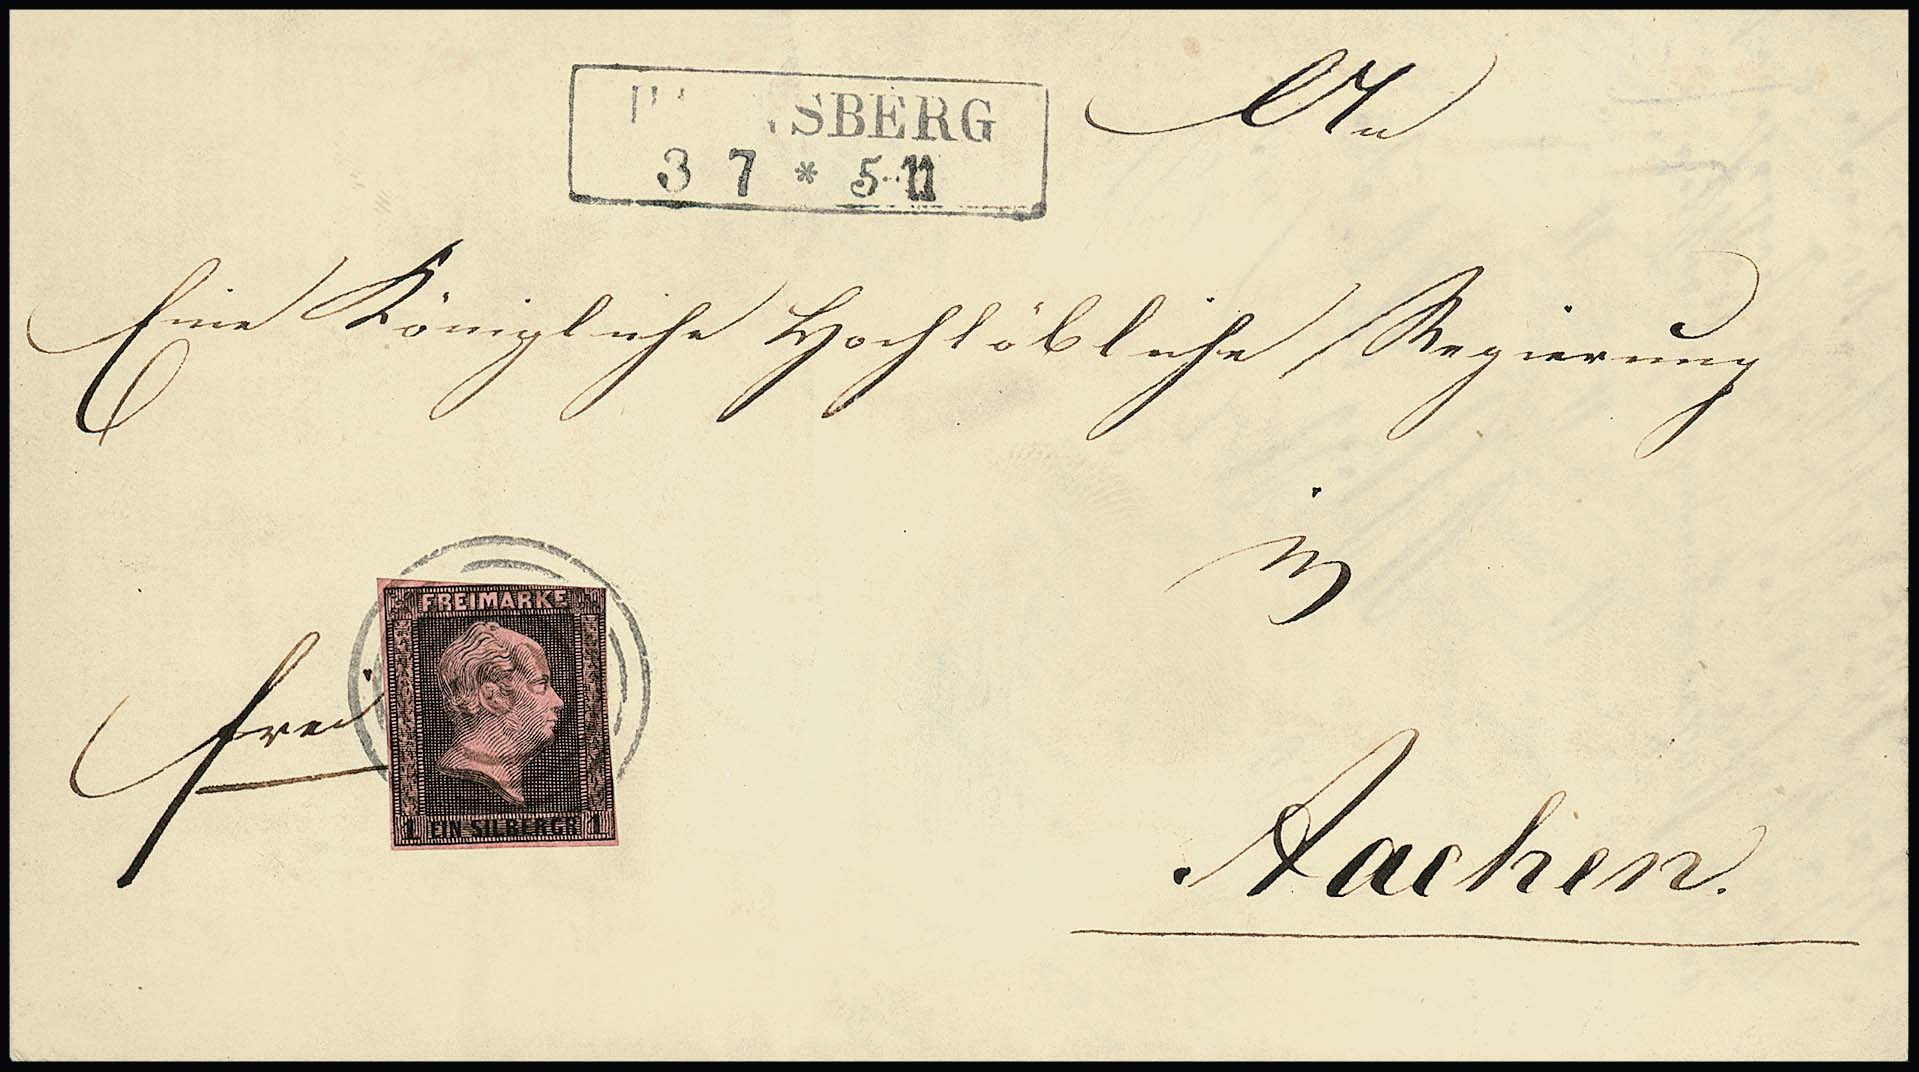 SBERG
3 7 * 5-11
An
Eine Königliche Hochlöbliche Regierung
in
frei
FREIMARKE
1 EIN SILBERGR 1
Aachen.